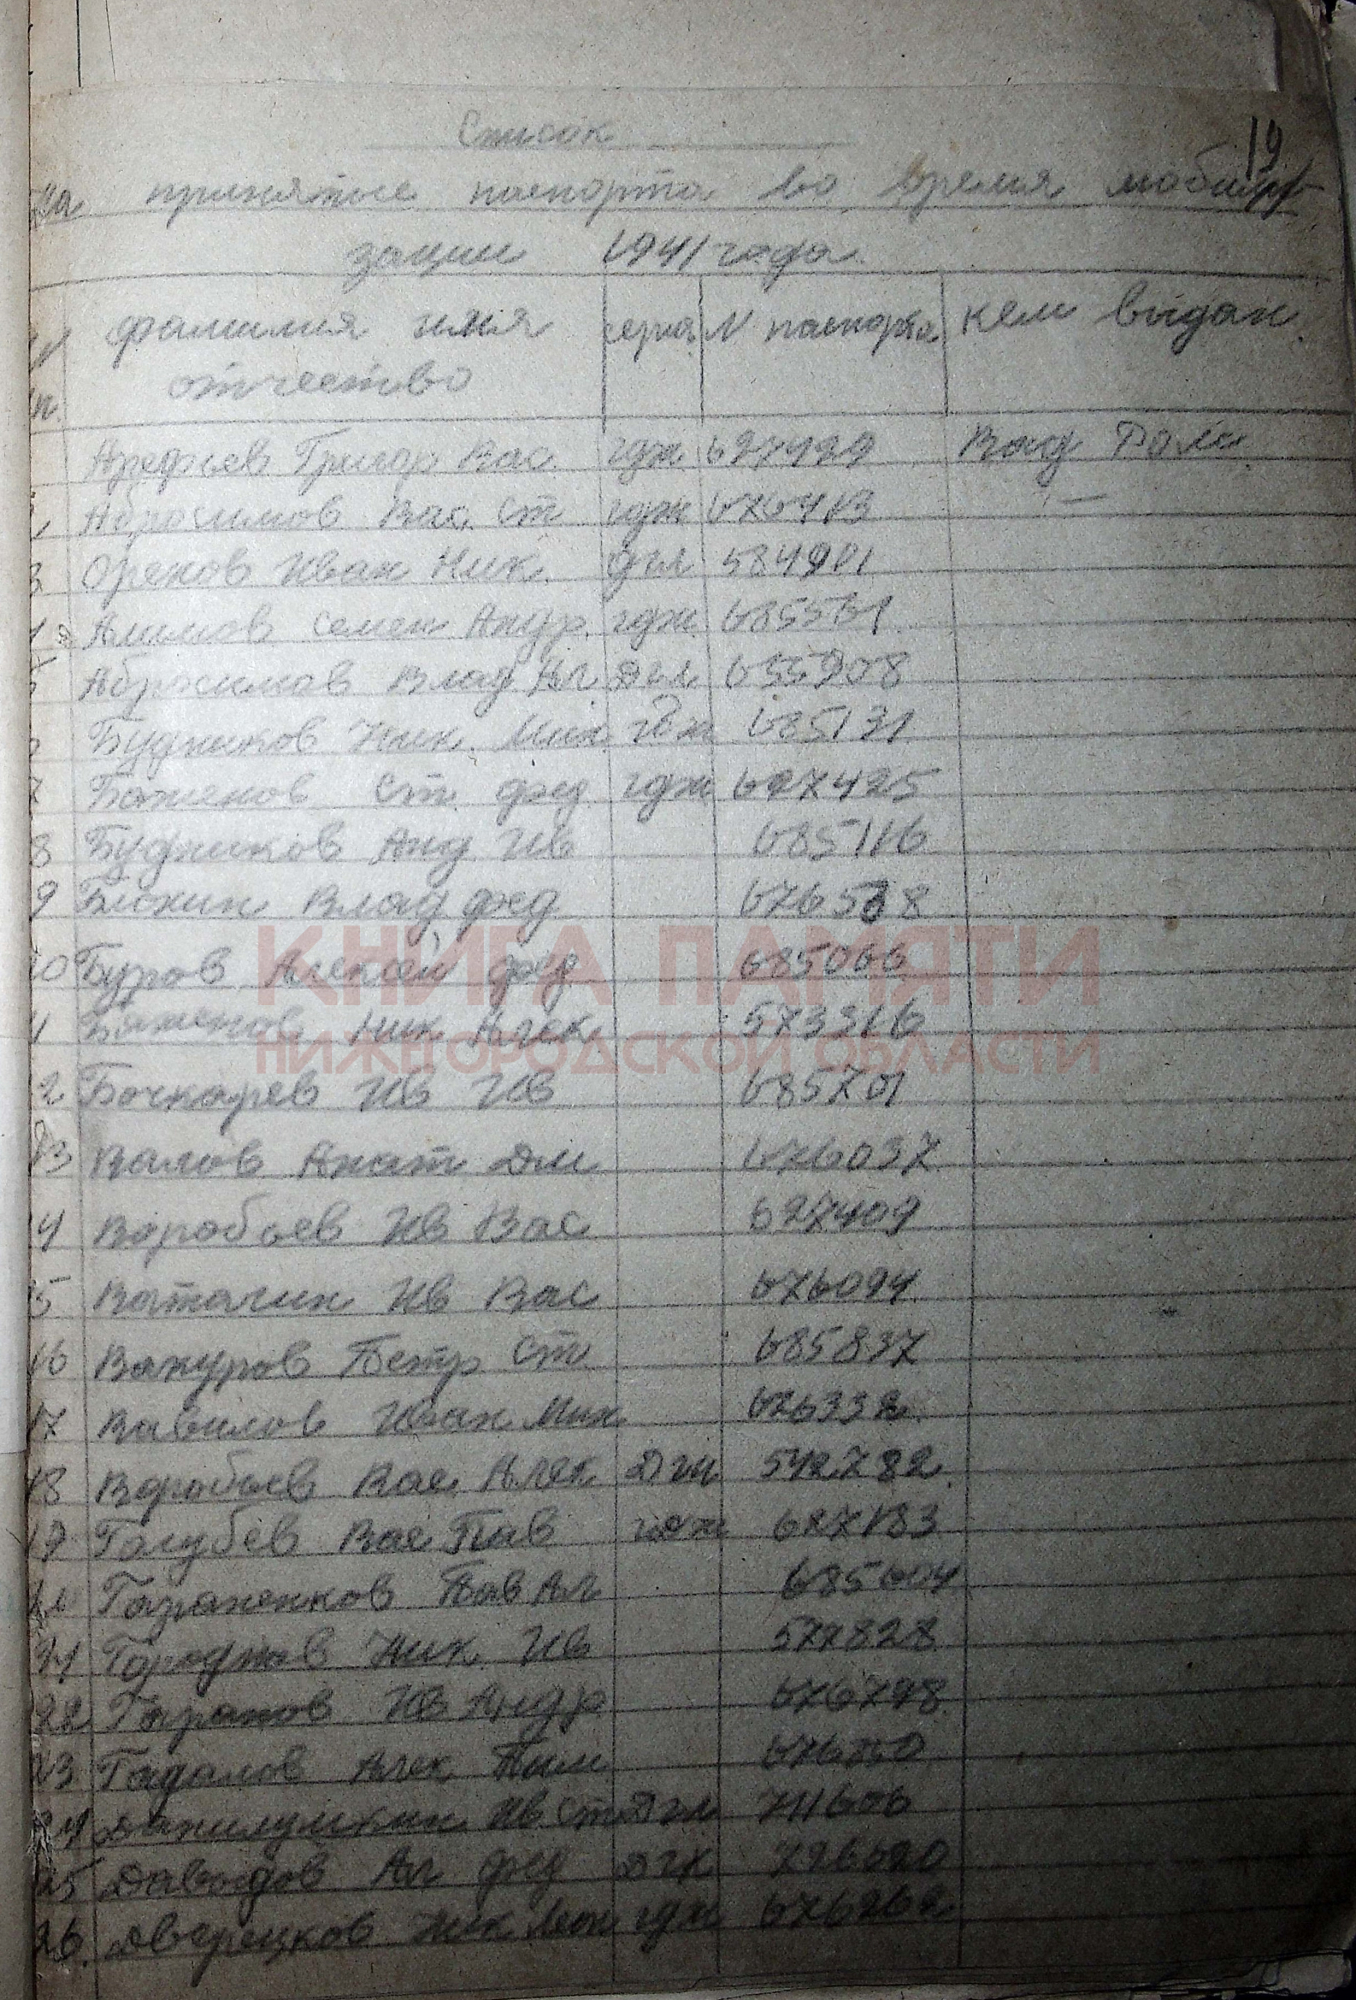 19
Список
На принятые паспорта во время мобили-
зации 1941 года
фамилия имя серия N паспорта кем выдан
отчество
Арефьев Григор Вас гдж 627429 Вад
Абросимов Вас Ст гдж 676713 —
3 Орехов Иван Ник дгл 584901
Алимов Семен Андр гдж 685561
5 Абросимов Влад Ал дгл 655908
Будников Ник Мих гдж 685131
7 Баженов Ст фед гдж 627425
8 Будников Анд Ив 685116
9 Блохин Влад фед 676538
10 Буров Алексей фед 685066
КНИГА ПАМЯТИ
Баженов Ник Алек 573316
НИЖЕГОРОДСКОЙ ОБЛАСТИ
2 Бочкарев Ив Ив 685701
13 Валов Анат Дм 676037
14 Воробьев Ив Вас 627409
15 Ваталин Ив Вас 676094
16 Вакуров Петр Ст 685837
17 Вавилов Иван Мих 676332
18 Воробьев Вас Алек Дгл 542782
19 Голубев Вас Пав гдж 627183
20 Гараненков Пав Ал 685604
21 Городнов Ник Ив 577828
22 Гаранов Ив Андр 676798
23 Гадалов Алек
24 Данилушкин Ив Ст Дгл 711606
25 Давыдов Ал фед 726620
26 Дворецков Ник Леон гдж 676262